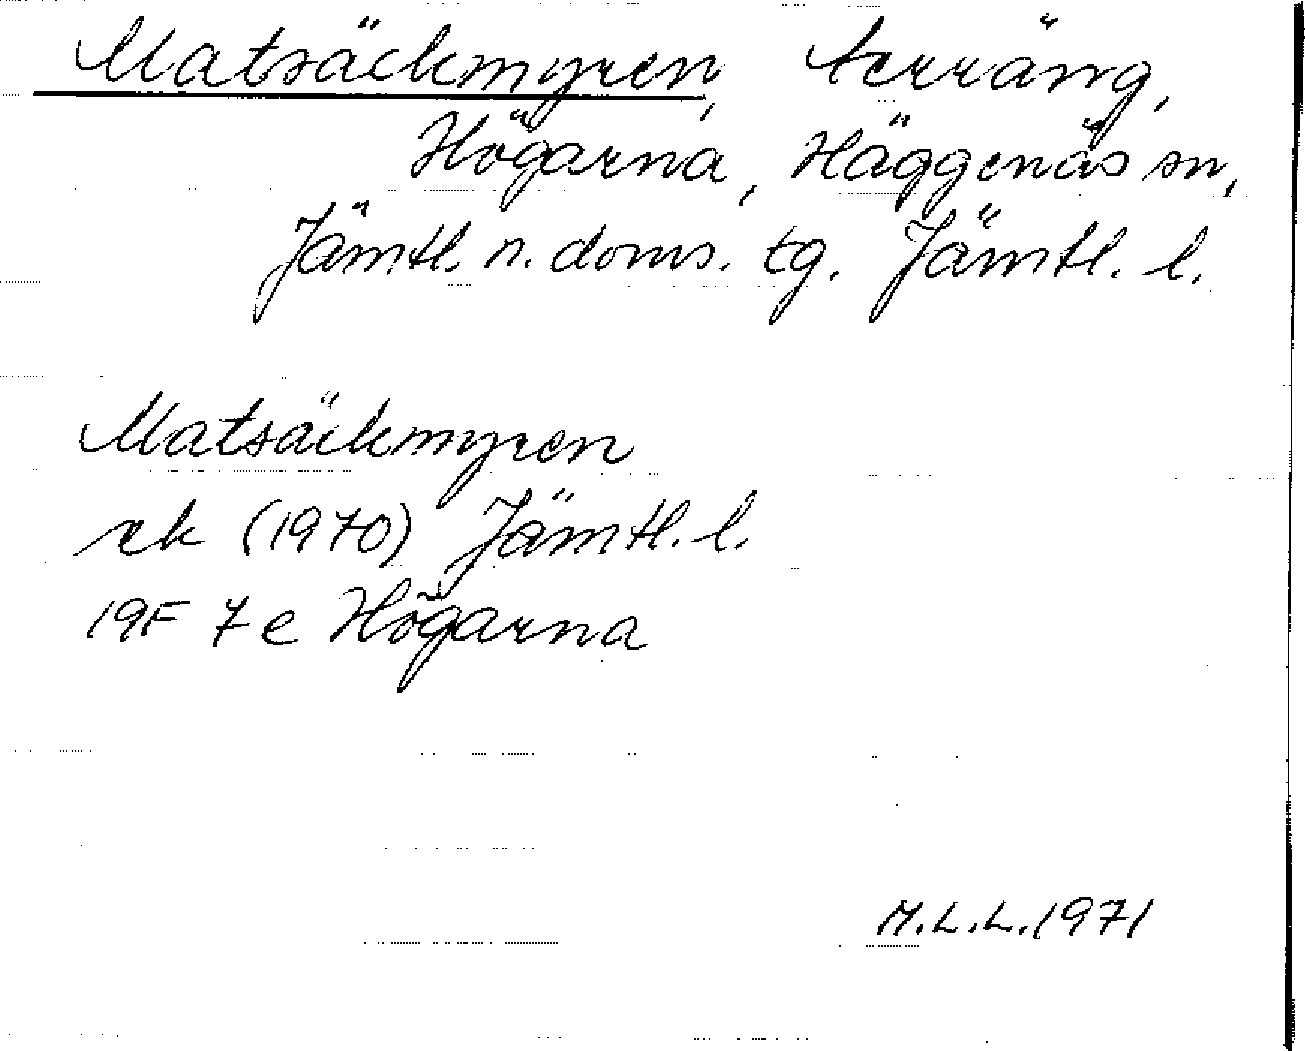 Matsäckmyren, terräng,
Högarna, Häggenås sn,
Jämtl. n. doms. tg. Jämtl. l.
Matsäckmyren
rk (1970) Jämtl. l.
19F 7e Högarna
M.L.L. 1971